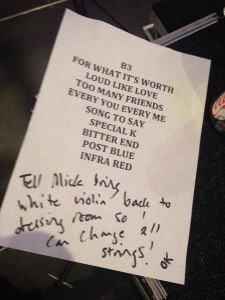 B3
FOR WHAT IT'S WORTH
LOUD LIKE LOVE
TOO MANY FRIENDS
EVERY YOU EVERY ME
SONG TO SAY
SPECIAL K
BITTER END
POST BLUE
INFRA RED
Tell Mick bring
white violin back to
dressing room so I
can change 2
strings!
OK